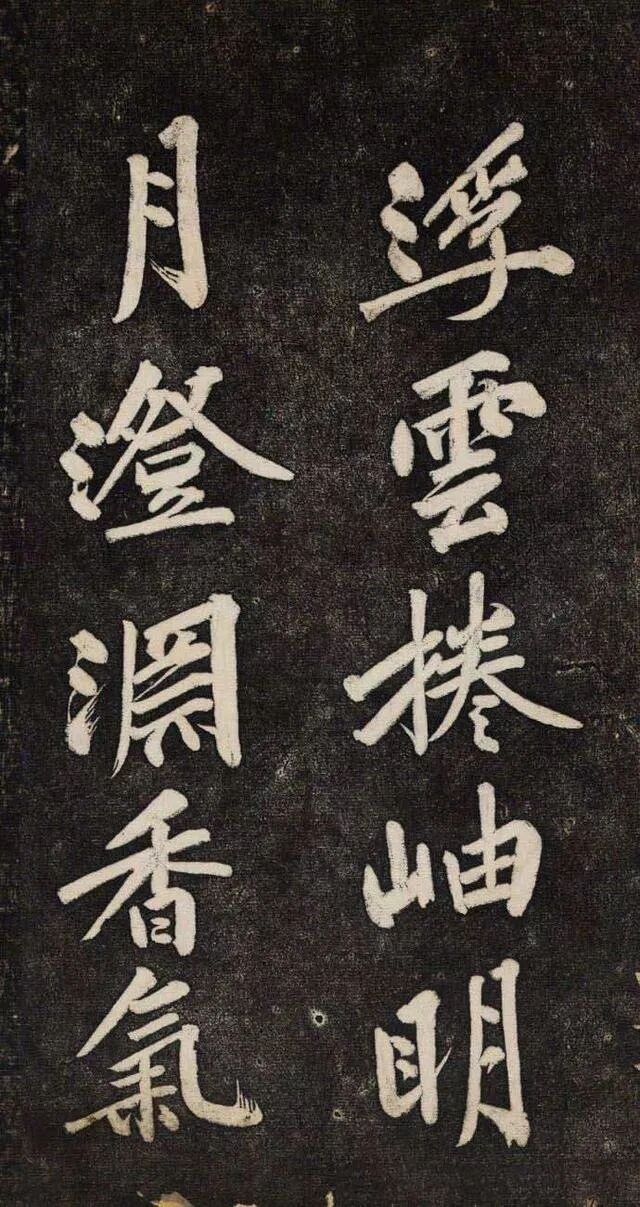 浮雲捲岫明
月澄渊香氣